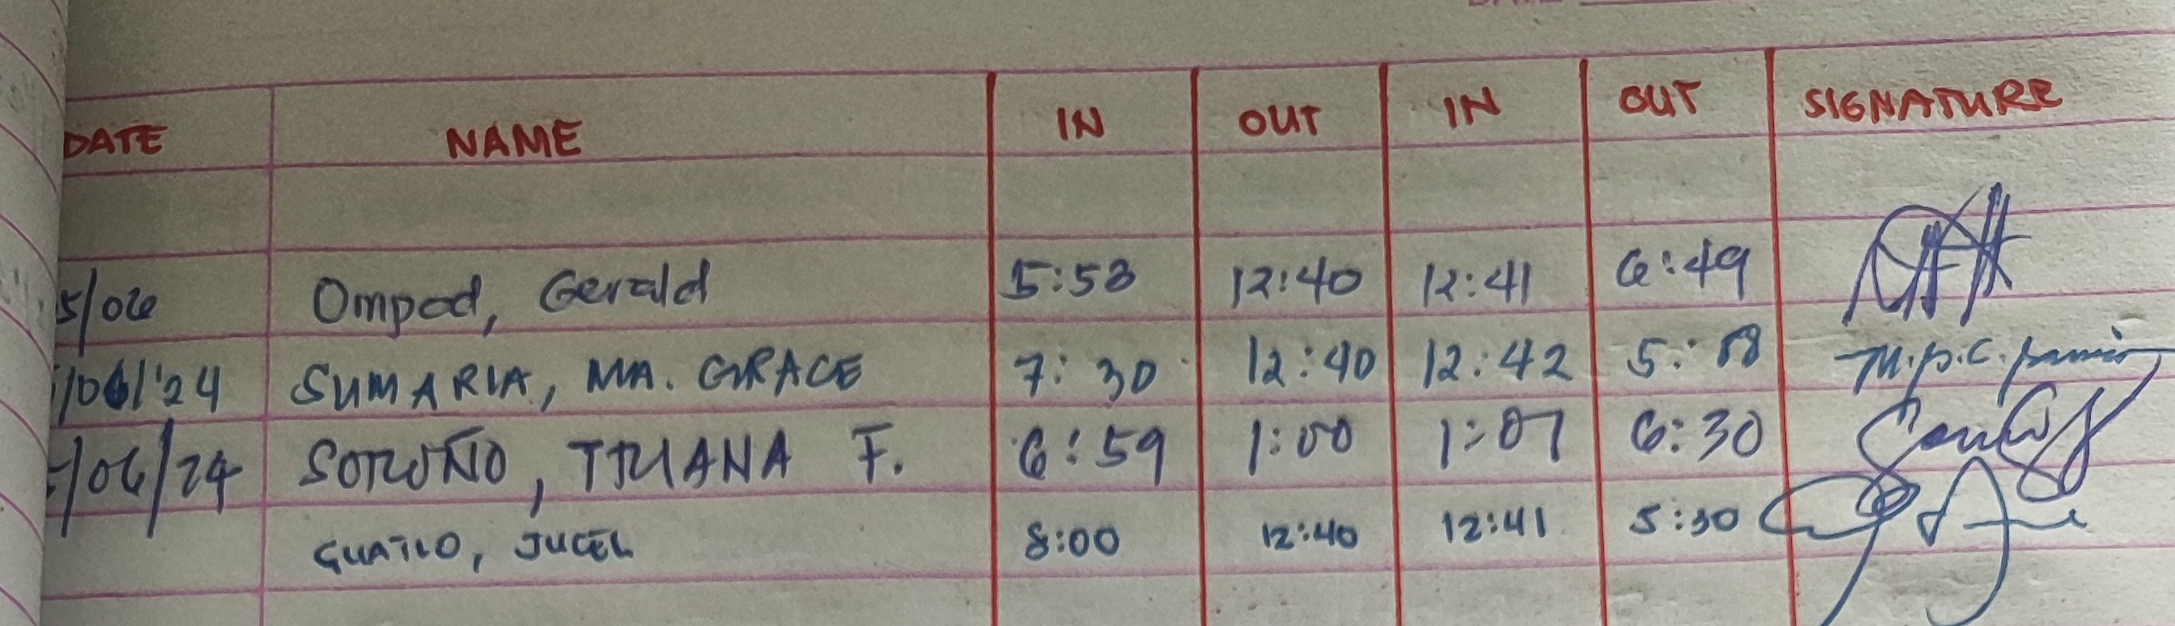 DATE NAME IN OUT IN OUT SIGNATURE
5/06 Ompad, Gerald 5:53 12:40 12:41 6:49
/06/'24 SUMARIA, MA. GRACE 7:30 12:40 12:42 5:58
/06/24 SOROÑO, TRIANA F. 6:59 1:00 1:07 6:30
JUCEL 8:00 12:40 12:41 5:30